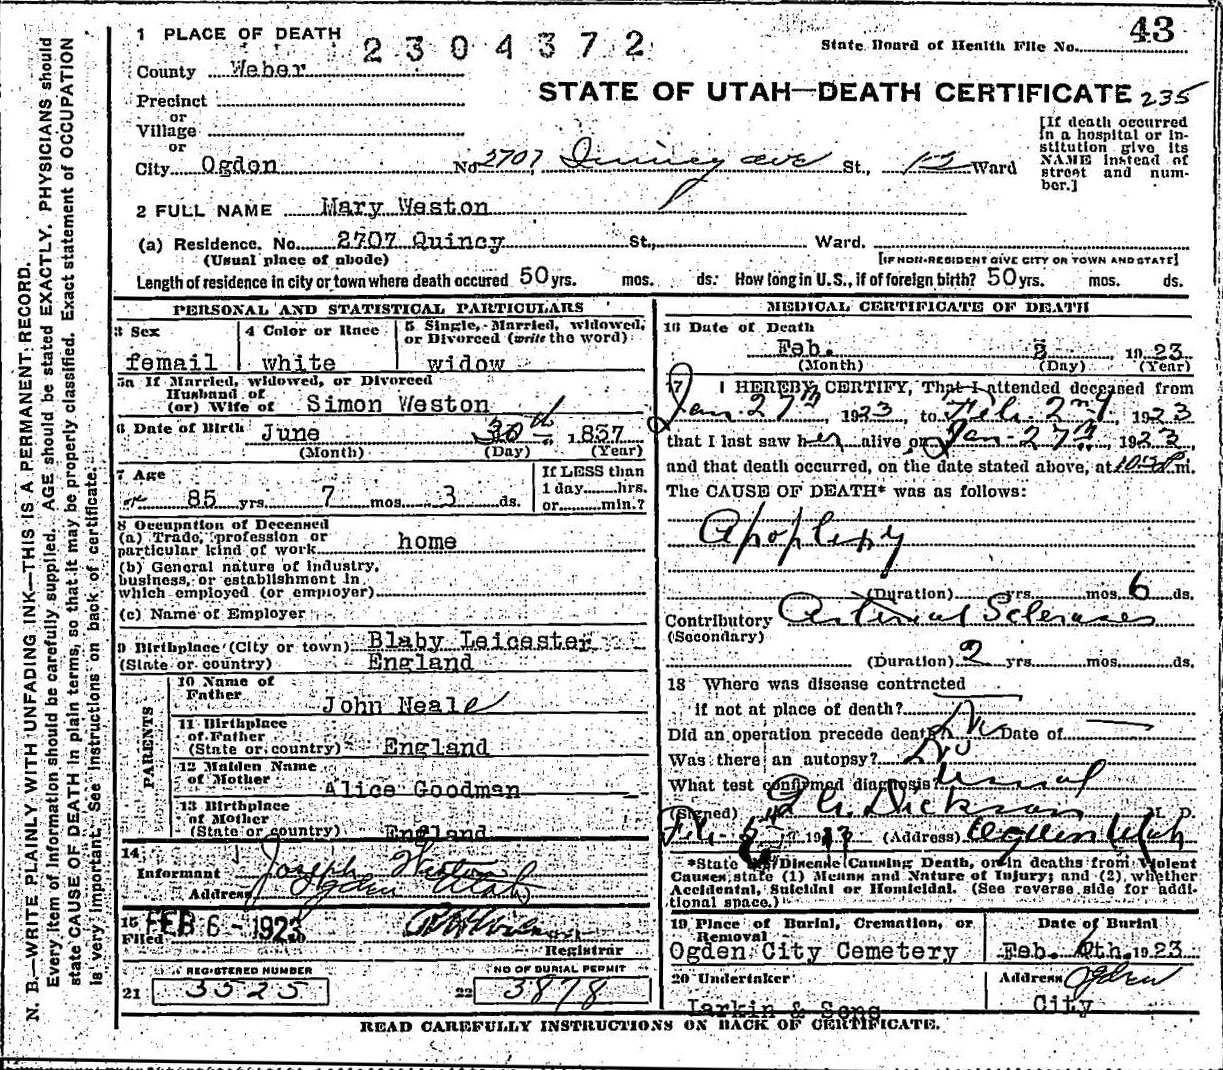 43
1 PLACE OF DEATH
2304372
State Board of Health File No.
County Weber
STATE OF UTAH—DEATH CERTIFICATE 235
Precinct
or
Village
or
City Ogden No 2707, Quincy ave St., Ward
[If death occurred in a hospital or in-
stitution give its
NAME instead of
street and num-
ber.]
2 FULL NAME Mary Weston
(a) Residence. No. 2707 Quincy St., Ward.
(Usual place of abode) [IF NON-RESIDENT GIVE CITY OR TOWN AND STATE]
Length of residence in city or town where death occured 50 yrs. mos. ds. How long in U.S., if of foreign birth? 50 yrs. mos. ds.
PERSONAL AND STATISTICAL PARTICULARS
3 Sex 4 Color or Race 5 Single, Married, widowed,
or Divorced (write the word)
femail white widow
5a If Married, widowed, or Divorced
Husband of
(or) Wife of Simon Weston
6 Date of Birth June 30th 1837
(Month) (Day) (Year)
7 Age If LESS than
1 day hrs.
85 yrs. 7 mos. 3 ds. or min.?
8 Occupation of Deceased
(a) Trade, profession or
particular kind of work home
(b) General nature of industry,
business, or establishment in
which employed (or employer)
(c) Name of Employer
9 Birthplace (City or town) Blaby Leicester
(State or country) England
PARENTS
10 Name of
Father John Neale
11 Birthplace
of Father
(State or country) England
12 Maiden Name
of Mother Alice Goodman
13 Birthplace
of Mother
(State or country) England
14
Informant Joseph Weston
Address Ogden Utah
15 FEB 6 - 1923
Filed
Registrar
REGISTERED NUMBER NO OF BURIAL PERMIT
21 3525 22 3878
MEDICAL CERTIFICATE OF DEATH
16 Date of Death
Feb. 2, 1923
(Month) (Day) (Year)
17 I HEREBY CERTIFY, That I attended deceased from
Jan. 27th 1923, to Feb. 2nd, 1923
that I last saw her alive on Jan. 27th, 1923,
and that death occurred, on the date stated above, at m.
The CAUSE OF DEATH* was as follows:
Apoplexy
(Duration) yrs. mos. 6 ds.
Contributory Arterial Scleroses
(Secondary)
(Duration) 2 yrs. mos. ds.
18 Where was disease contracted
if not at place of death?
Did an operation precede death? No Date of
Was there an autopsy? No
What test confirmed diagnosis? usual
(Signed) Dickson M. D.
Feb. 5 19 (Address) Ogden Utah
*State the Disease Causing Death, or in deaths from Violent
Causes, state (1) Means and Nature of Injury; and (2), whether
Accidental, Suicidal or Homicidal. (See reverse side for addi-
tional space.)
19 Place of Burial, Cremation, or Date of Burial
Removal
Ogden City Cemetery Feb. 6th. 1923
20 Undertaker Address Ogden
Larkin & Sons City
READ CAREFULLY INSTRUCTIONS ON BACK OF CERTIFICATE.
N. B.—WRITE PLAINLY WITH UNFADING INK—THIS IS A PERMANENT RECORD.
Every item of information should be carefully supplied. AGE should be stated EXACTLY. PHYSICIANS should
state CAUSE OF DEATH in plain terms, so that it may be properly classified. Exact statement of OCCUPATION
is very important. See instructions on back of certificate.